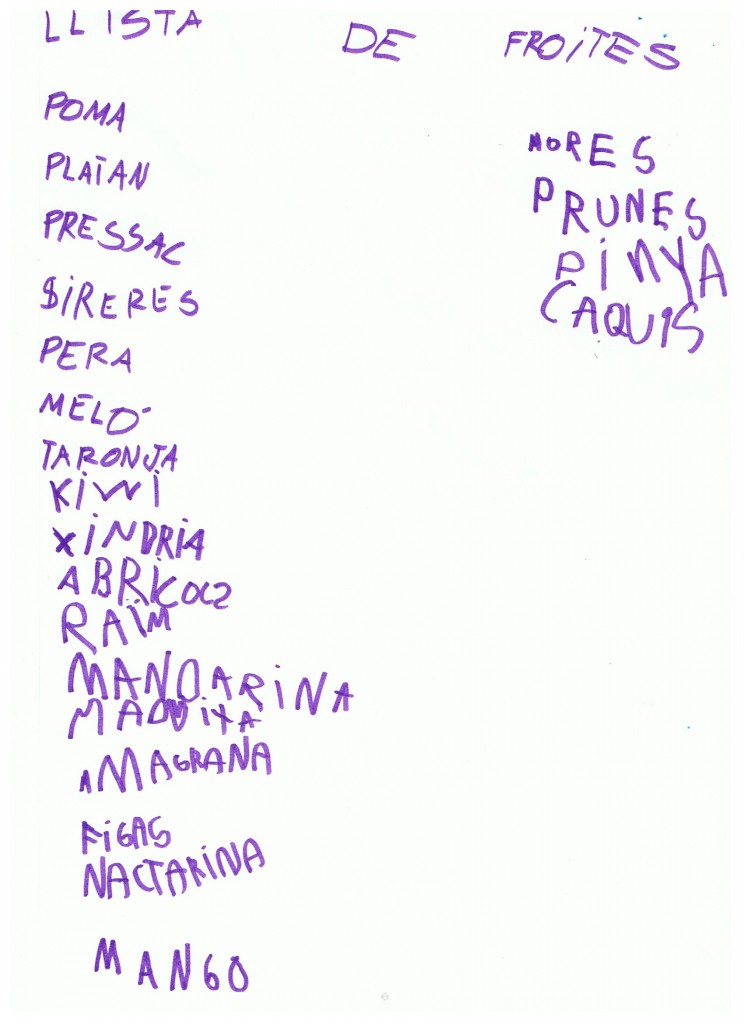 LLISTA DE FROITES
POMA
PLATAN
PRESSAC
SIRERES
PERA
MELÓ
TARONJA
KIWI
XINDRIA
ABRICOCS
RAÏM
MANDARINA
MADUIXA
MAGRANA
FIGAS
NACTARINA
MANGO
MORES
PRUNES
PINYA
CAQUIS